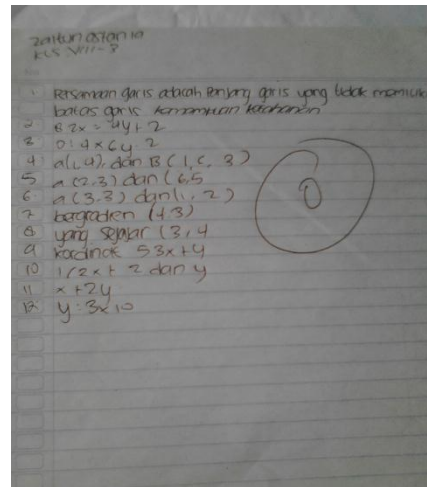 zaitun astania
KLS VIII-8
1 Persamaan garis adalah Panjang garis yang tidak memiliki
batas garis
2 B 2x = 4y + 2
3 D: 4 x 6y. 2
4 a(1,4), dan B (1, C, 3)
5 a (2,3) dan (6,5
6 a (3,3) dan (1, 2)
7 bagradien (4,3)
8 yang sejajar (3,4
9 kordinat 53x+4
10 1/2x + 2 dan y
11 x + 2y
12. y: 3x10
0